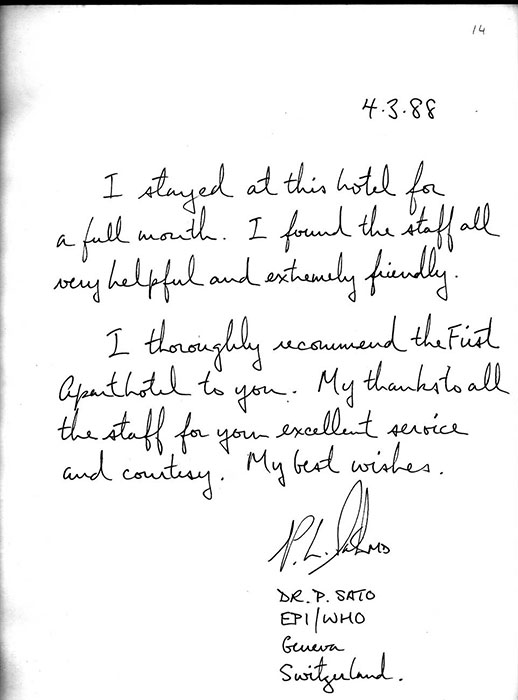 14
4.3.88
I stayed at this hotel for
a full month. I found the staff all
very helpful and extremely friendly.
I thoroughly recommend the First
Aparthotel to you. My thanks to all
the staff for your excellent service
and courtesy. My best wishes.
P. L. Sato MD
DR. P. SATO
EPI/WHO
Geneva
Switzerland.